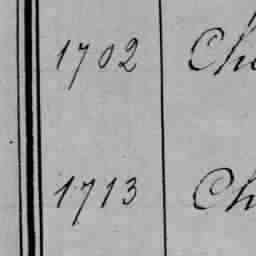 1702 Che
1713 Ch